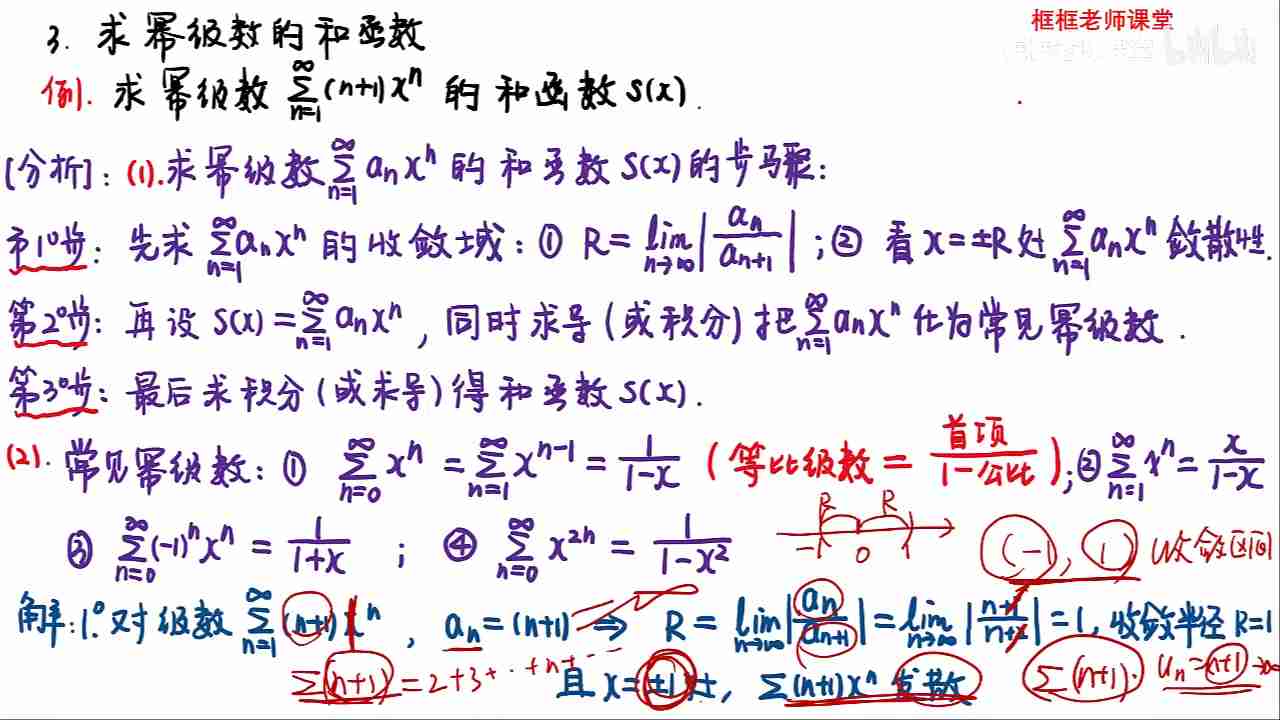 框框老师课堂
3. 求幂级数的和函数
例. 求幂级数 ∑_{n=1}^{∞}(n+1)x^n 的和函数 S(x).
[分析]: (1). 求幂级数 ∑_{n=1}^{∞} a_n x^n 的和函数 S(x) 的步骤:
第1°步: 先求 ∑_{n=1}^{∞} a_n x^n 的收敛域: ① R = lim_{n→∞} |a_n / a_{n+1}| ; ② 看 x = ±R 处 ∑_{n=1}^{∞} a_n x^n 敛散性.
第2°步: 再设 S(x) = ∑_{n=1}^{∞} a_n x^n , 同时求导(或积分)把 ∑_{n=1}^{∞} a_n x^n 化为常见幂级数.
第3°步: 最后求积分(或求导)得和函数 S(x).
(2). 常见幂级数: ① ∑_{n=0}^{∞} x^n = ∑_{n=1}^{∞} x^{n-1} = 1/(1-x) (等比级数 = 首项/(1-公比)); ② ∑_{n=1}^{∞} x^n = x/(1-x)
③ ∑_{n=0}^{∞} (-1)^n x^n = 1/(1+x) ; ④ ∑_{n=0}^{∞} x^{2n} = 1/(1-x²)
R R -1 0 1 (-1, 1) 收敛区间
解: 1°. 对级数 ∑_{n=1}^{∞} (n+1)x^n , a_n = (n+1) ⇒ R = lim_{n→∞} |a_n / a_{n+1}| = lim_{n→∞} |(n+1)/(n+2)| = 1, 收敛半径 R=1
∑(n+1) = 2+3+…+n+… 且 x=±1时, ∑(n+1)x^n 发散 ∑(n+1). u_n = n+1 → ∞